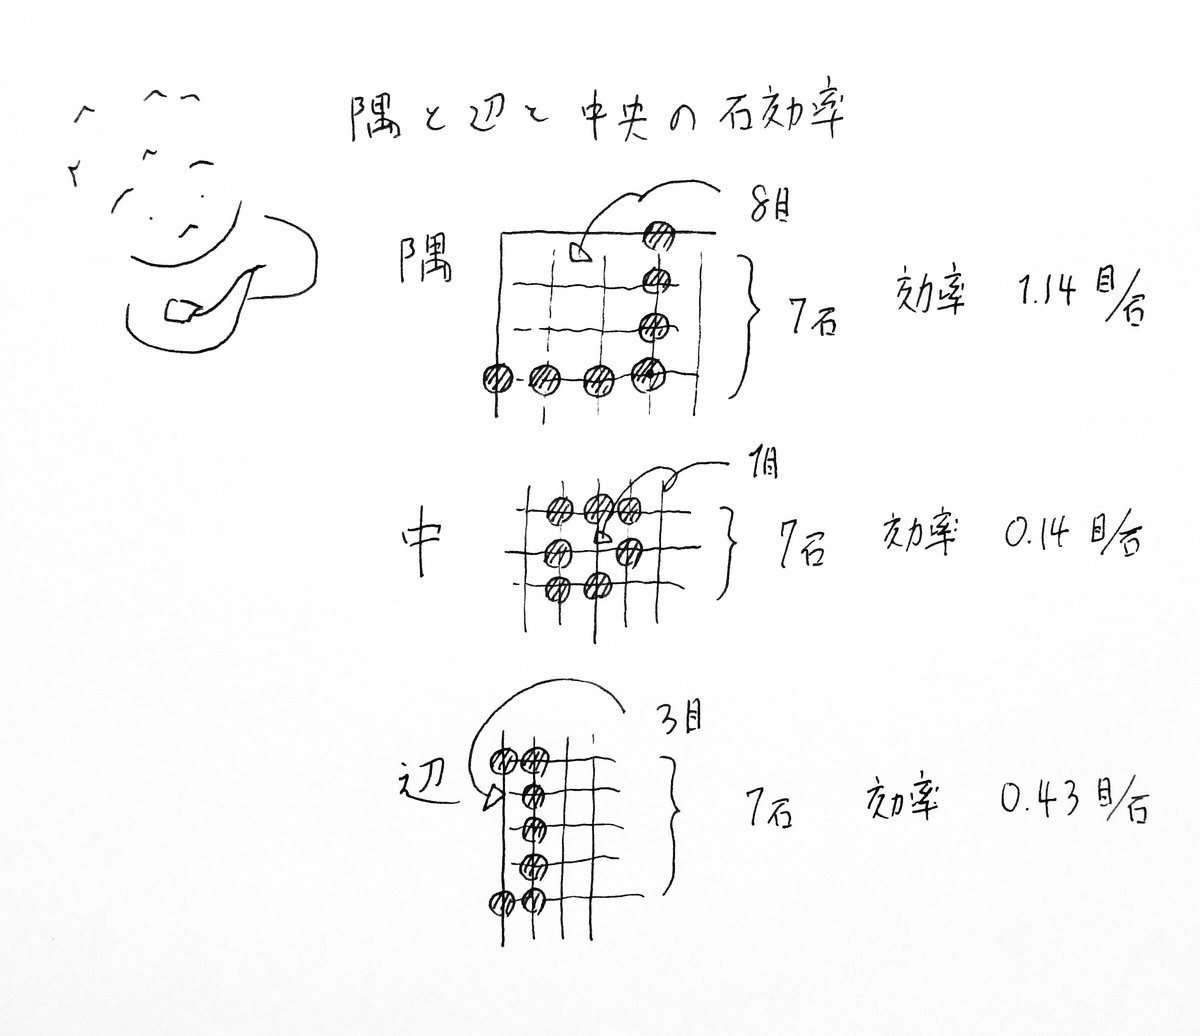 隅と辺と中央の石効率
8目
隅 7石 効率 1.14目/石
1目
中 7石 効率 0.14目/石
3目
辺 7石 効率 0.43目/石